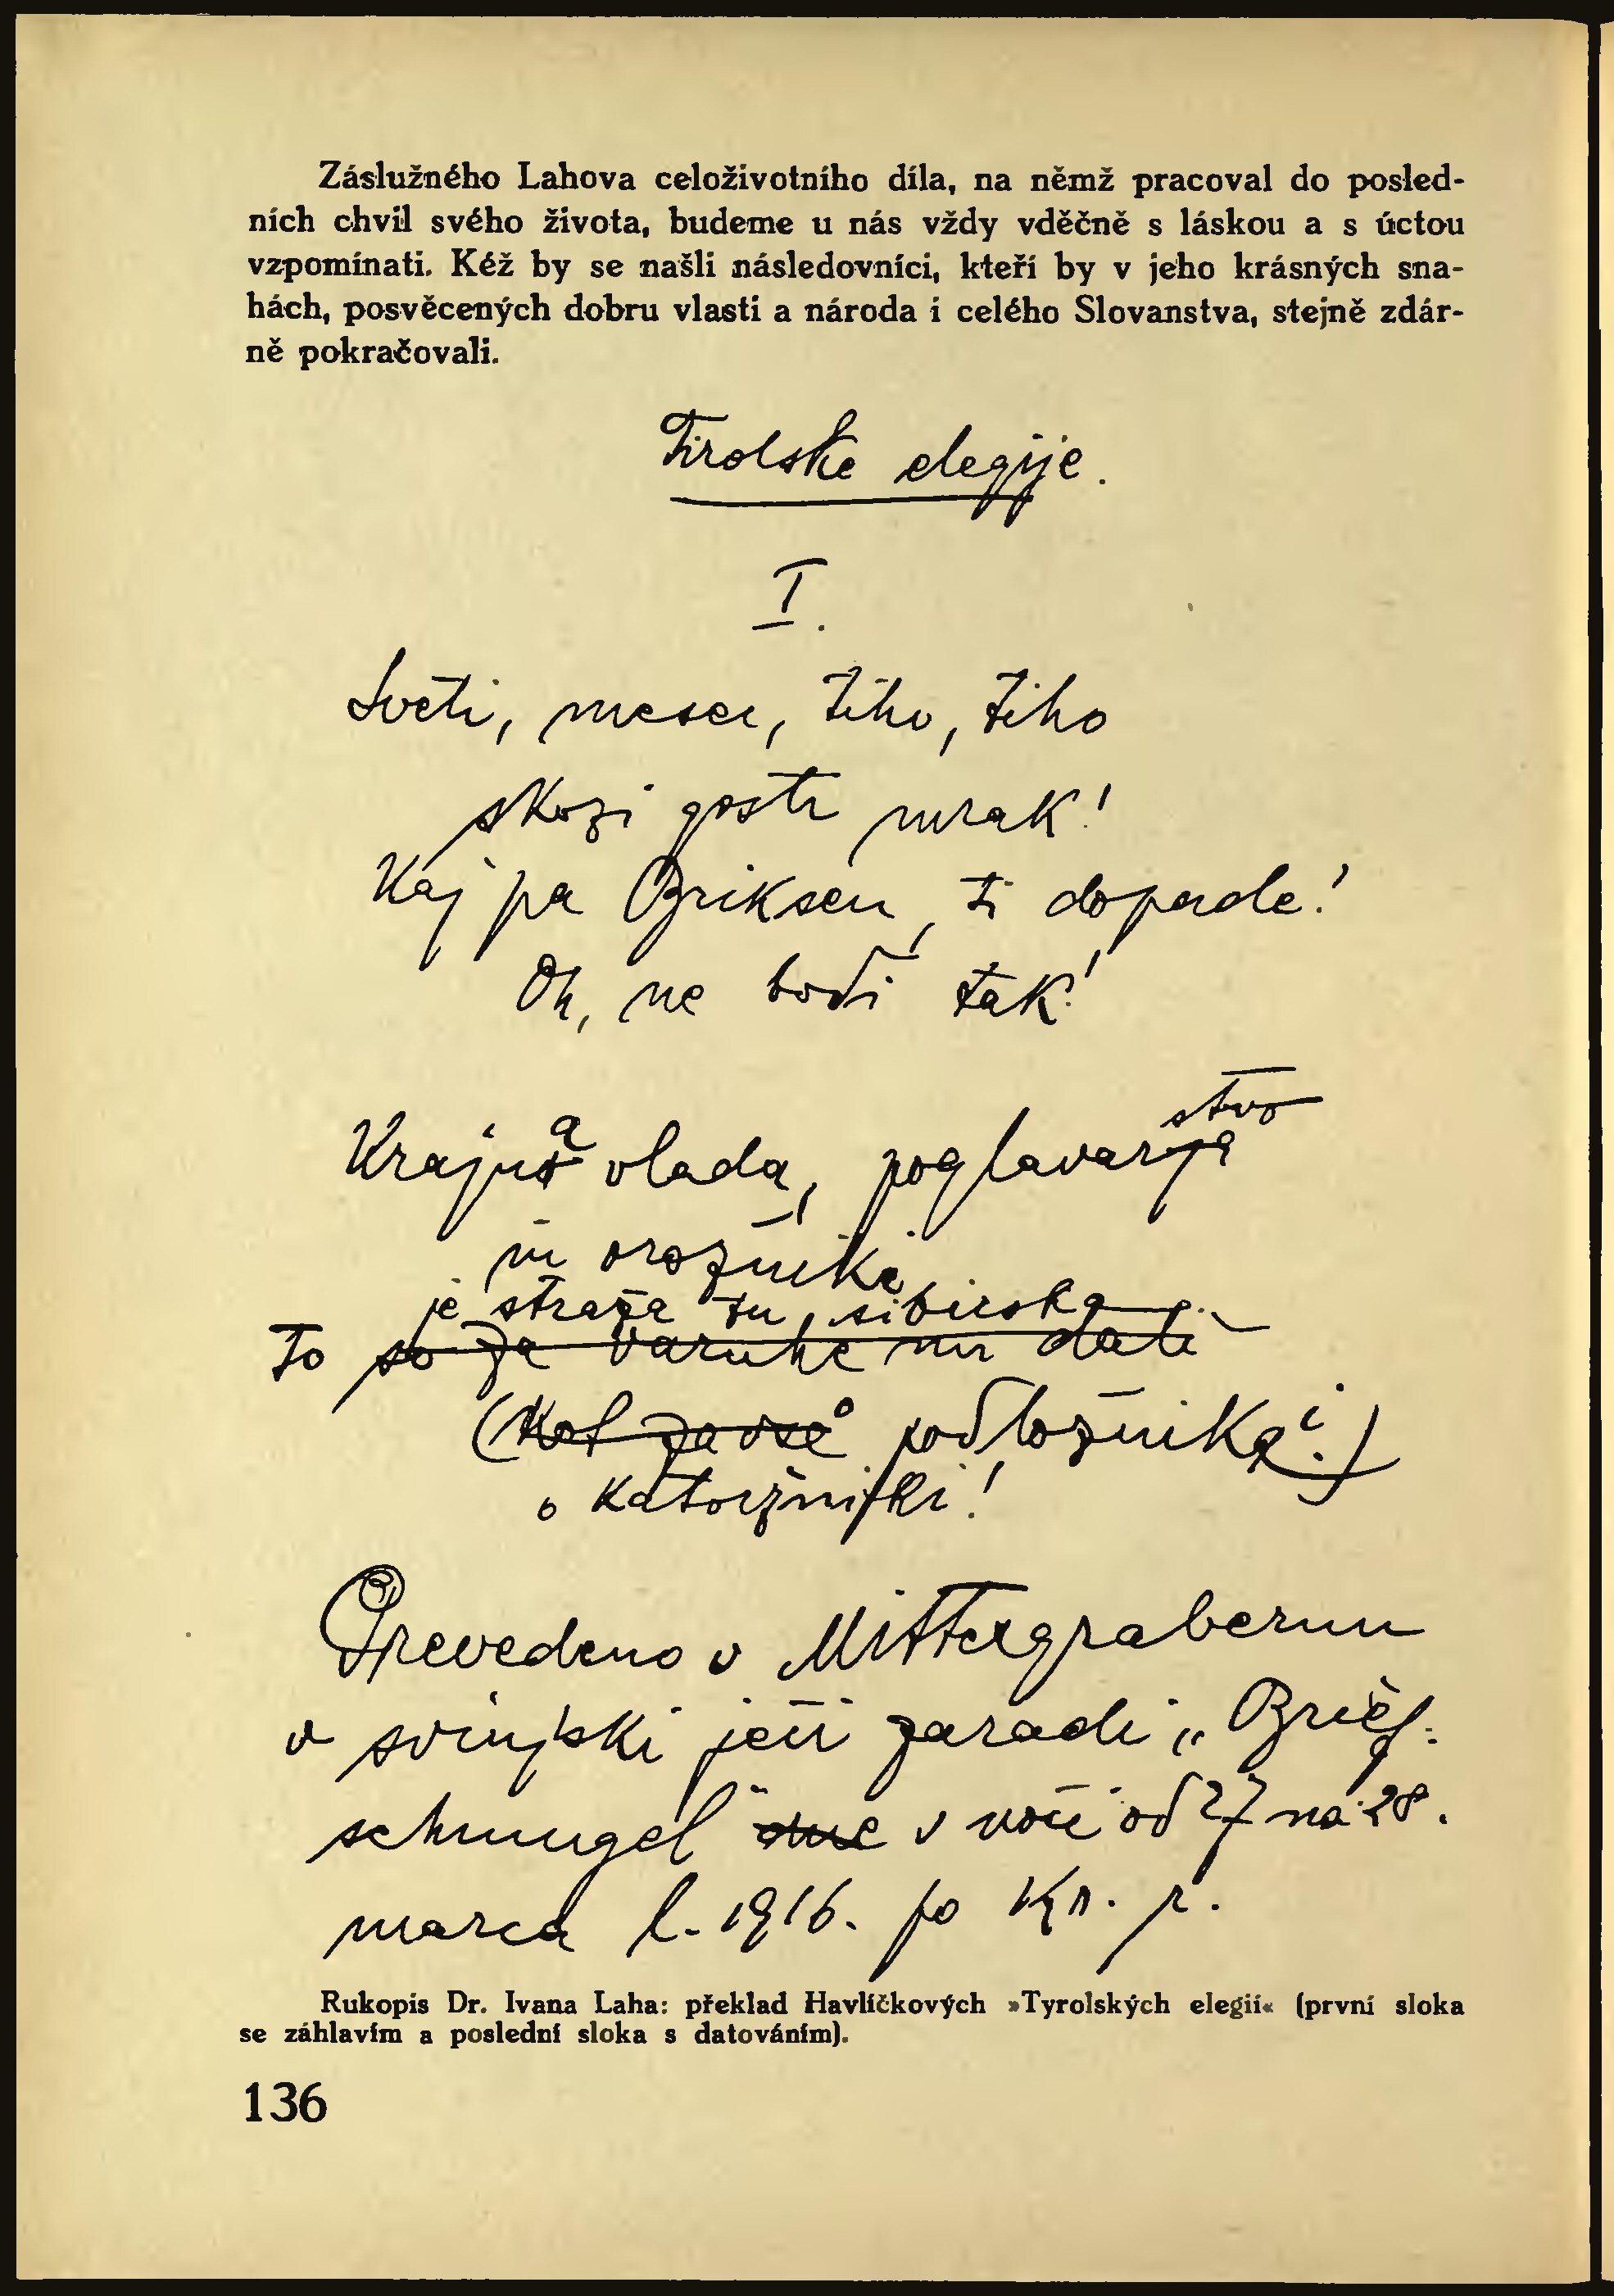 Záslužného Lahova celoživotního díla, na němž pracoval do posled-
ních chvil svého života, budeme u nás vždy vděčně s láskou a s úctou
vzpomínati. Kéž by se našli následovníci, kteří by v jeho krásných sna-
hách, posvěcených dobru vlasti a národa i celého Slovanstva, stejně zdár-
ně pokračovali.
Tirolske elegije.
I.
Sveti, mesec, tiho, tiho
skozi gosti mrak!
Kaj pa Briksen, ti dopade!
Oh, ne bodi tak!
stvo
Krajna vlada, poglavarja
in orožniki,
je straža tu, sibirska
To so za varuhe mi dali
(Kot za vse podložniki.)
o katoržniki!
Prevedeno v Mittergrabernu
v svinjski ječi zaradi „Brief-
schmugel" dne v noči od 27 na 28.
marca l. 1916. po Kr. r.
Rukopis Dr. Ivana Laha: překlad Havlíčkových »Tyrolských elegií« (první sloka
se záhlavím a poslední sloka s datováním).
136